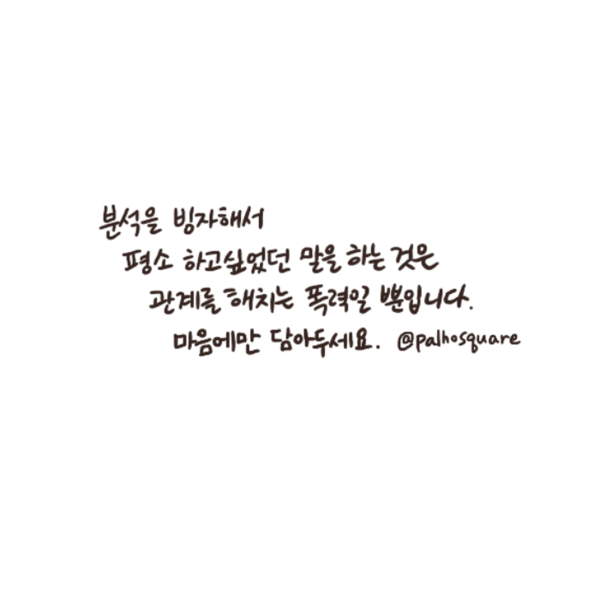 분석을 빙자해서
평소 하고싶었던 말을 하는 것은
관계를 해치는 폭력일 뿐입니다.
마음에만 담아두세요. @palhosquare